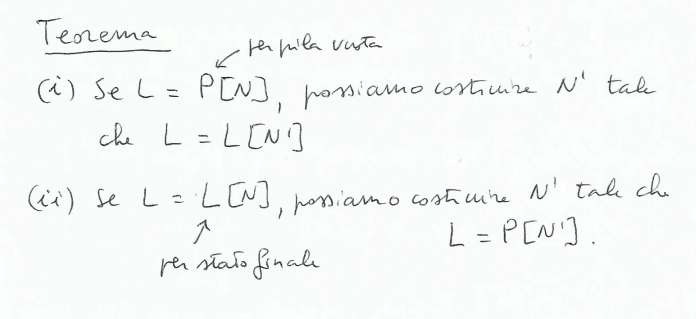 Teorema
per pila vuota
(i) Se L = P[N], possiamo costruire N' tale
che L = L[N']
(ii) Se L = L[N], possiamo costruire N' tale che
L = P[N'].
per stato finale